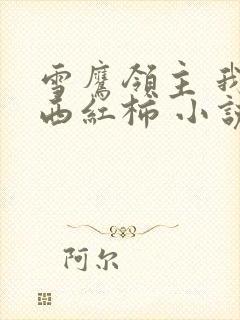 雪鹰領主 我
西紅柿 小説
阿尔